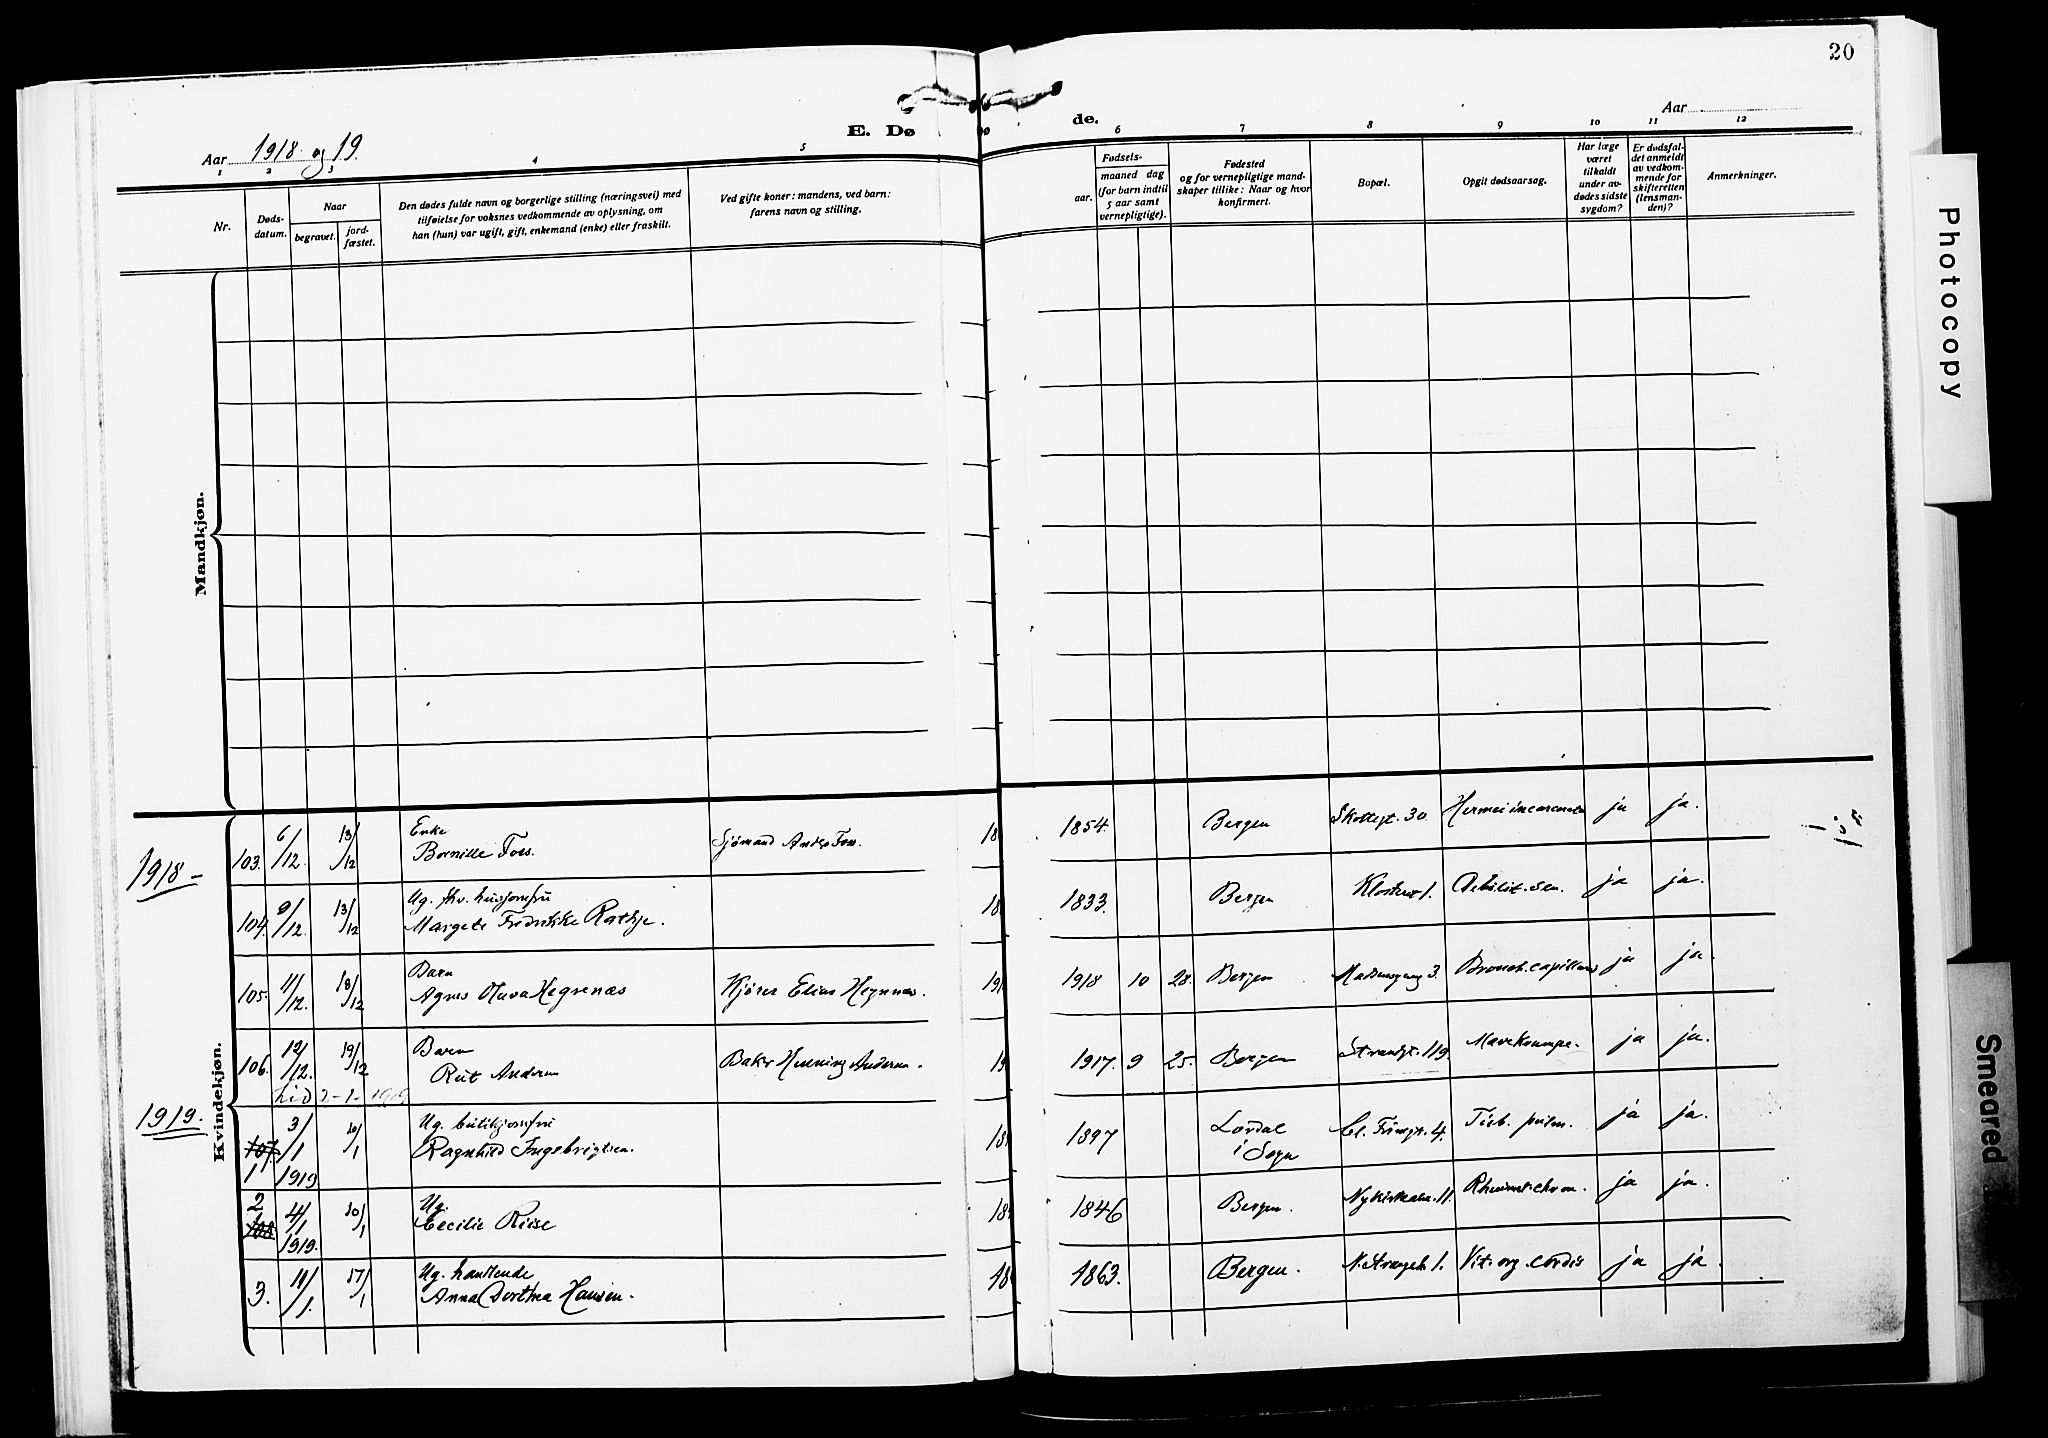 20
Aar 1918 og 19.
E. Dø
de.
Aar
1 2 3 4 5 6 7 8 9 10 11 12
Nr.
Døds-
datum.
Naar
begravet.
jord-
fæstet.
Den dødes fulde navn og borgerlige stilling (næringsvei) med
tilføielse for voksnes vedkommende av oplysning, om
han (hun) var ugift, gift, enkemand (enke) eller fraskilt.
Ved gifte koner: mandens, ved barn:
farens navn og stilling.
Fødsels-
aar.
maaned dag
(for barn indtil
5 aar samt
vernepligtige).
Fødested
og for vernepligtige mand-
skaper tillike: Naar og hvor
konfirmert.
Bopæl.
Opgit dødsaarsag.
Har læge
været
tilkaldt
under av-
dødes sidste
sygdom?
Er dødsfal-
det anmeldt
av vedkom-
mende for
skifteretten
(lensman-
den)?
Anmerkninger.
Mandkjøn.
Kvindekjøn.
1918 -
103. 6/12. 13/12 Enke
Bornille Foss. Sjömand Anders Foss. 18 1854. Bergen Skottegt. 30 ja ja.
104. 9/12. 13/12 Ug. fhv. husjomfru
Margete Fredrikke Rathje. 18 1833. Bergen Klosteret 1. Debilit. sen. ja ja.
105. 11/12. 18/12 Barn
Agnes Olava Hegrenæs Kjører Elias Hegrenæs. 191 1918 10 28. Bergen 3. Bronch. capillaris ja ja.
106. 12/12. 19/12 Barn
Rut Andersen Baker Henning Andersen. 19 1917. 9 25. Bergen Strandgt. 119. Mavekrampe. ja ja.
2-1-1919
1919.
107. 1 3/1 1919 10/1 Ug. butikjomfru
Ragnhild Ingebrigtsen. 18 1897 Lærdal
i Sogn 4. Tub. pulm. ja ja.
2 108 4/1 1919. 10/1 Ug.
Cecilie Riise 18 1846 Bergen. Nykirkealm. 11. Rheumat. chron. ja ja.
3. 11/1. 17/1 Ug. handlende
Anna Dorthea Hansen. 18 1863. Bergen. 1. Vit. org. cordis ja ja.
Photocopy
Smeared